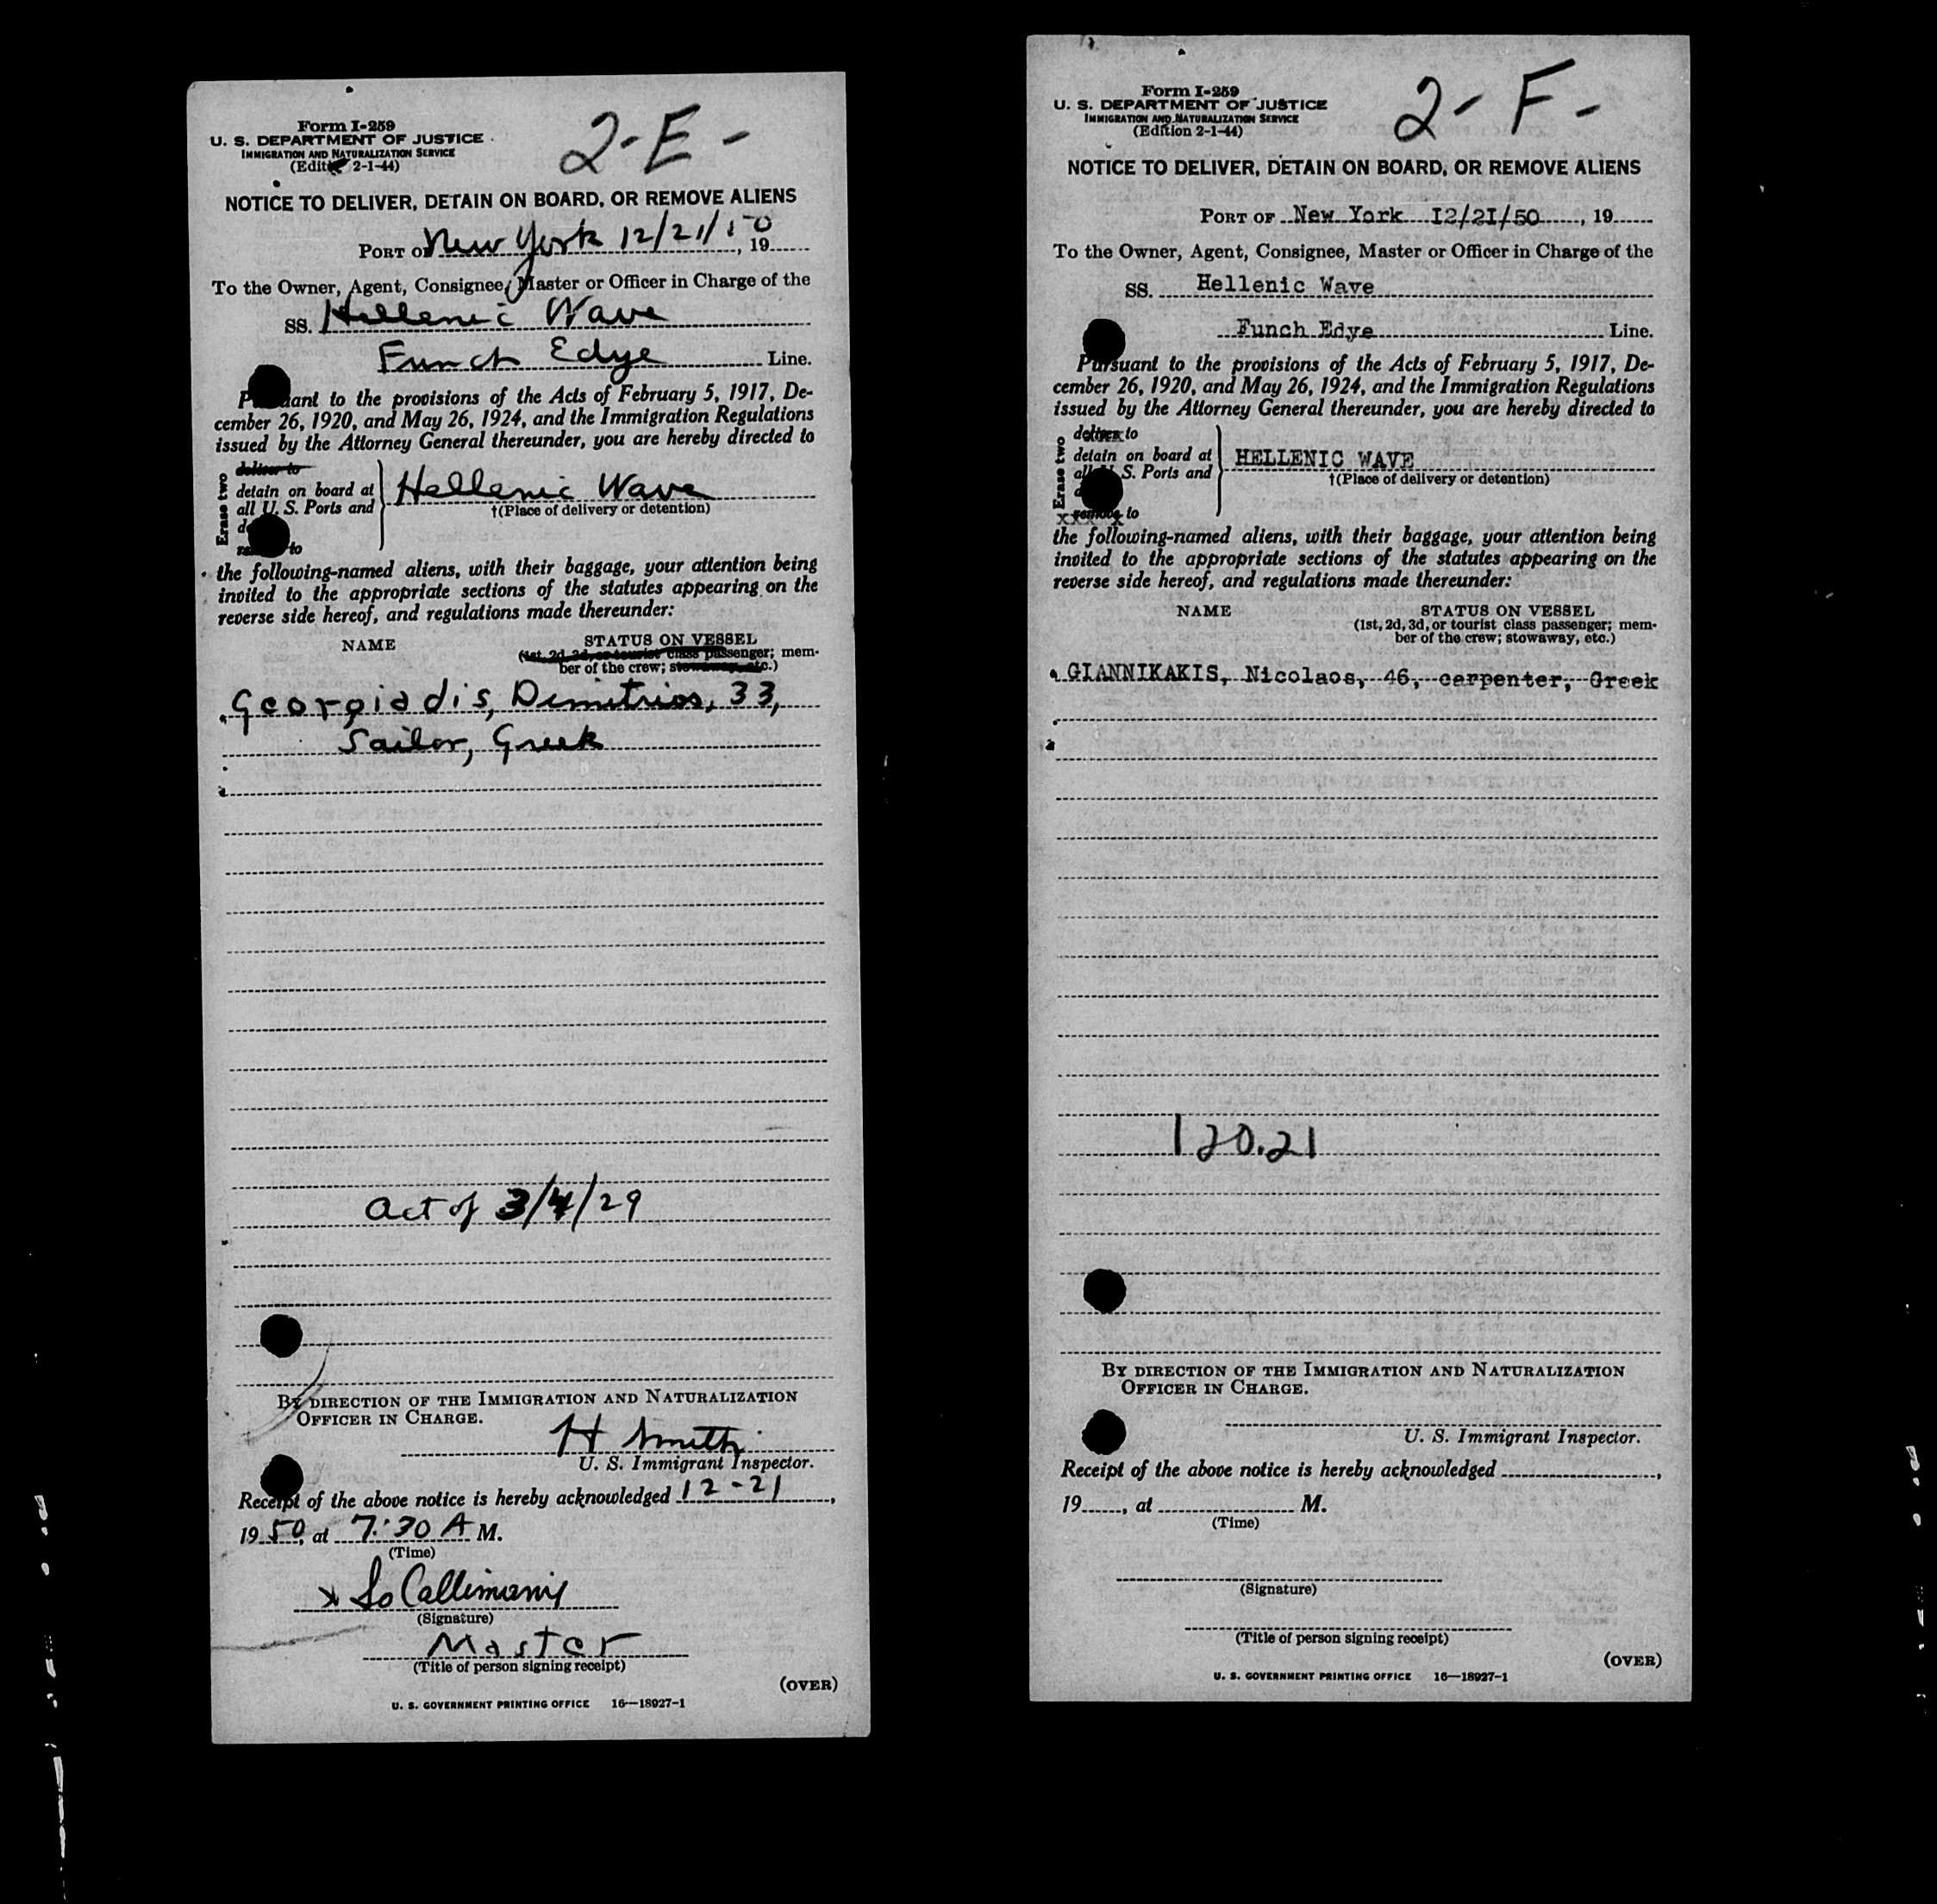 Form I-259
U. S. DEPARTMENT OF JUSTICE
IMMIGRATION AND NATURALIZATION SERVICE
(Edition 2-1-44)
2-E-
NOTICE TO DELIVER, DETAIN ON BOARD, OR REMOVE ALIENS
PORT OF New York 12/21/50, 19
To the Owner, Agent, Consignee, Master or Officer in Charge of the
SS. Hellenic Wave
Funch Edye Line.
Pursuant to the provisions of the Acts of February 5, 1917, De-
cember 26, 1920, and May 26, 1924, and the Immigration Regulations
issued by the Attorney General thereunder, you are hereby directed to
Erase two
deliver to
detain on board at
all U. S. Ports and
to
Hellenic Wave
†(Place of delivery or detention)
the following-named aliens, with their baggage, your attention being
invited to the appropriate sections of the statutes appearing on the
reverse side hereof, and regulations made thereunder:
NAME STATUS ON VESSEL
(1st, 2d, 3d, or tourist class passenger; mem-
ber of the crew; stowaway, etc.)
Georgiadis, Demitrios, 33,
Sailor, Greek
Act of 3/4/29
BY DIRECTION OF THE IMMIGRATION AND NATURALIZATION
OFFICER IN CHARGE.
H Smith
U. S. Immigrant Inspector.
Receipt of the above notice is hereby acknowledged 12-21,
1950, at 7:30 A M.
(Time)
(Signature)
Master
(Title of person signing receipt)
(OVER)
U. S. GOVERNMENT PRINTING OFFICE 16—18927-1
Form I-259
U. S. DEPARTMENT OF JUSTICE
IMMIGRATION AND NATURALIZATION SERVICE
(Edition 2-1-44)
2-F-
NOTICE TO DELIVER, DETAIN ON BOARD, OR REMOVE ALIENS
PORT OF New York 12/21/50, 19
To the Owner, Agent, Consignee, Master or Officer in Charge of the
SS. Hellenic Wave
Funch Edye Line.
Pursuant to the provisions of the Acts of February 5, 1917, De-
cember 26, 1920, and May 26, 1924, and the Immigration Regulations
issued by the Attorney General thereunder, you are hereby directed to
Erase two
deliver to
detain on board at
all U. S. Ports and
remove to
HELLENIC WAVE
†(Place of delivery or detention)
the following-named aliens, with their baggage, your attention being
invited to the appropriate sections of the statutes appearing on the
reverse side hereof, and regulations made thereunder:
NAME STATUS ON VESSEL
(1st, 2d, 3d, or tourist class passenger; mem-
ber of the crew; stowaway, etc.)
GIANNIKAKIS, Nicolaos, 46, carpenter, Greek
120.21
BY DIRECTION OF THE IMMIGRATION AND NATURALIZATION
OFFICER IN CHARGE.
U. S. Immigrant Inspector.
Receipt of the above notice is hereby acknowledged ,
19 , at M.
(Time)
(Signature)
(Title of person signing receipt)
(OVER)
U. S. GOVERNMENT PRINTING OFFICE 16—18927-1